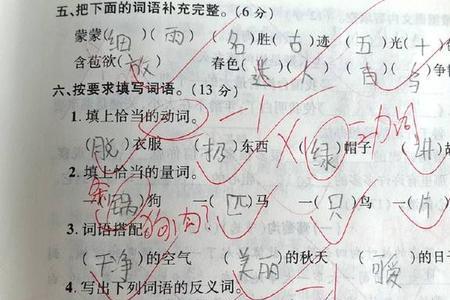 五、把下面的词语补充完整。(6分)
蒙蒙(细)(雨) (名)胜(古)迹 (五)光(十)
含苞欲(放) 春色(迷)(人) 百(鸟)争
六、按要求填写词语。(13分)
1. 填上恰当的动词。 -1
(脱)衣服 (扔)东西 (绿)帽子 动词
2. 填上恰当的量词。
一(锅)狗 一(匹)马 一(只)鸟 一(片)
狗肉?
3. 词语搭配
(干净)的空气 (美丽)的秋天 (暖)的日
4. 写出下列词语的反义词。